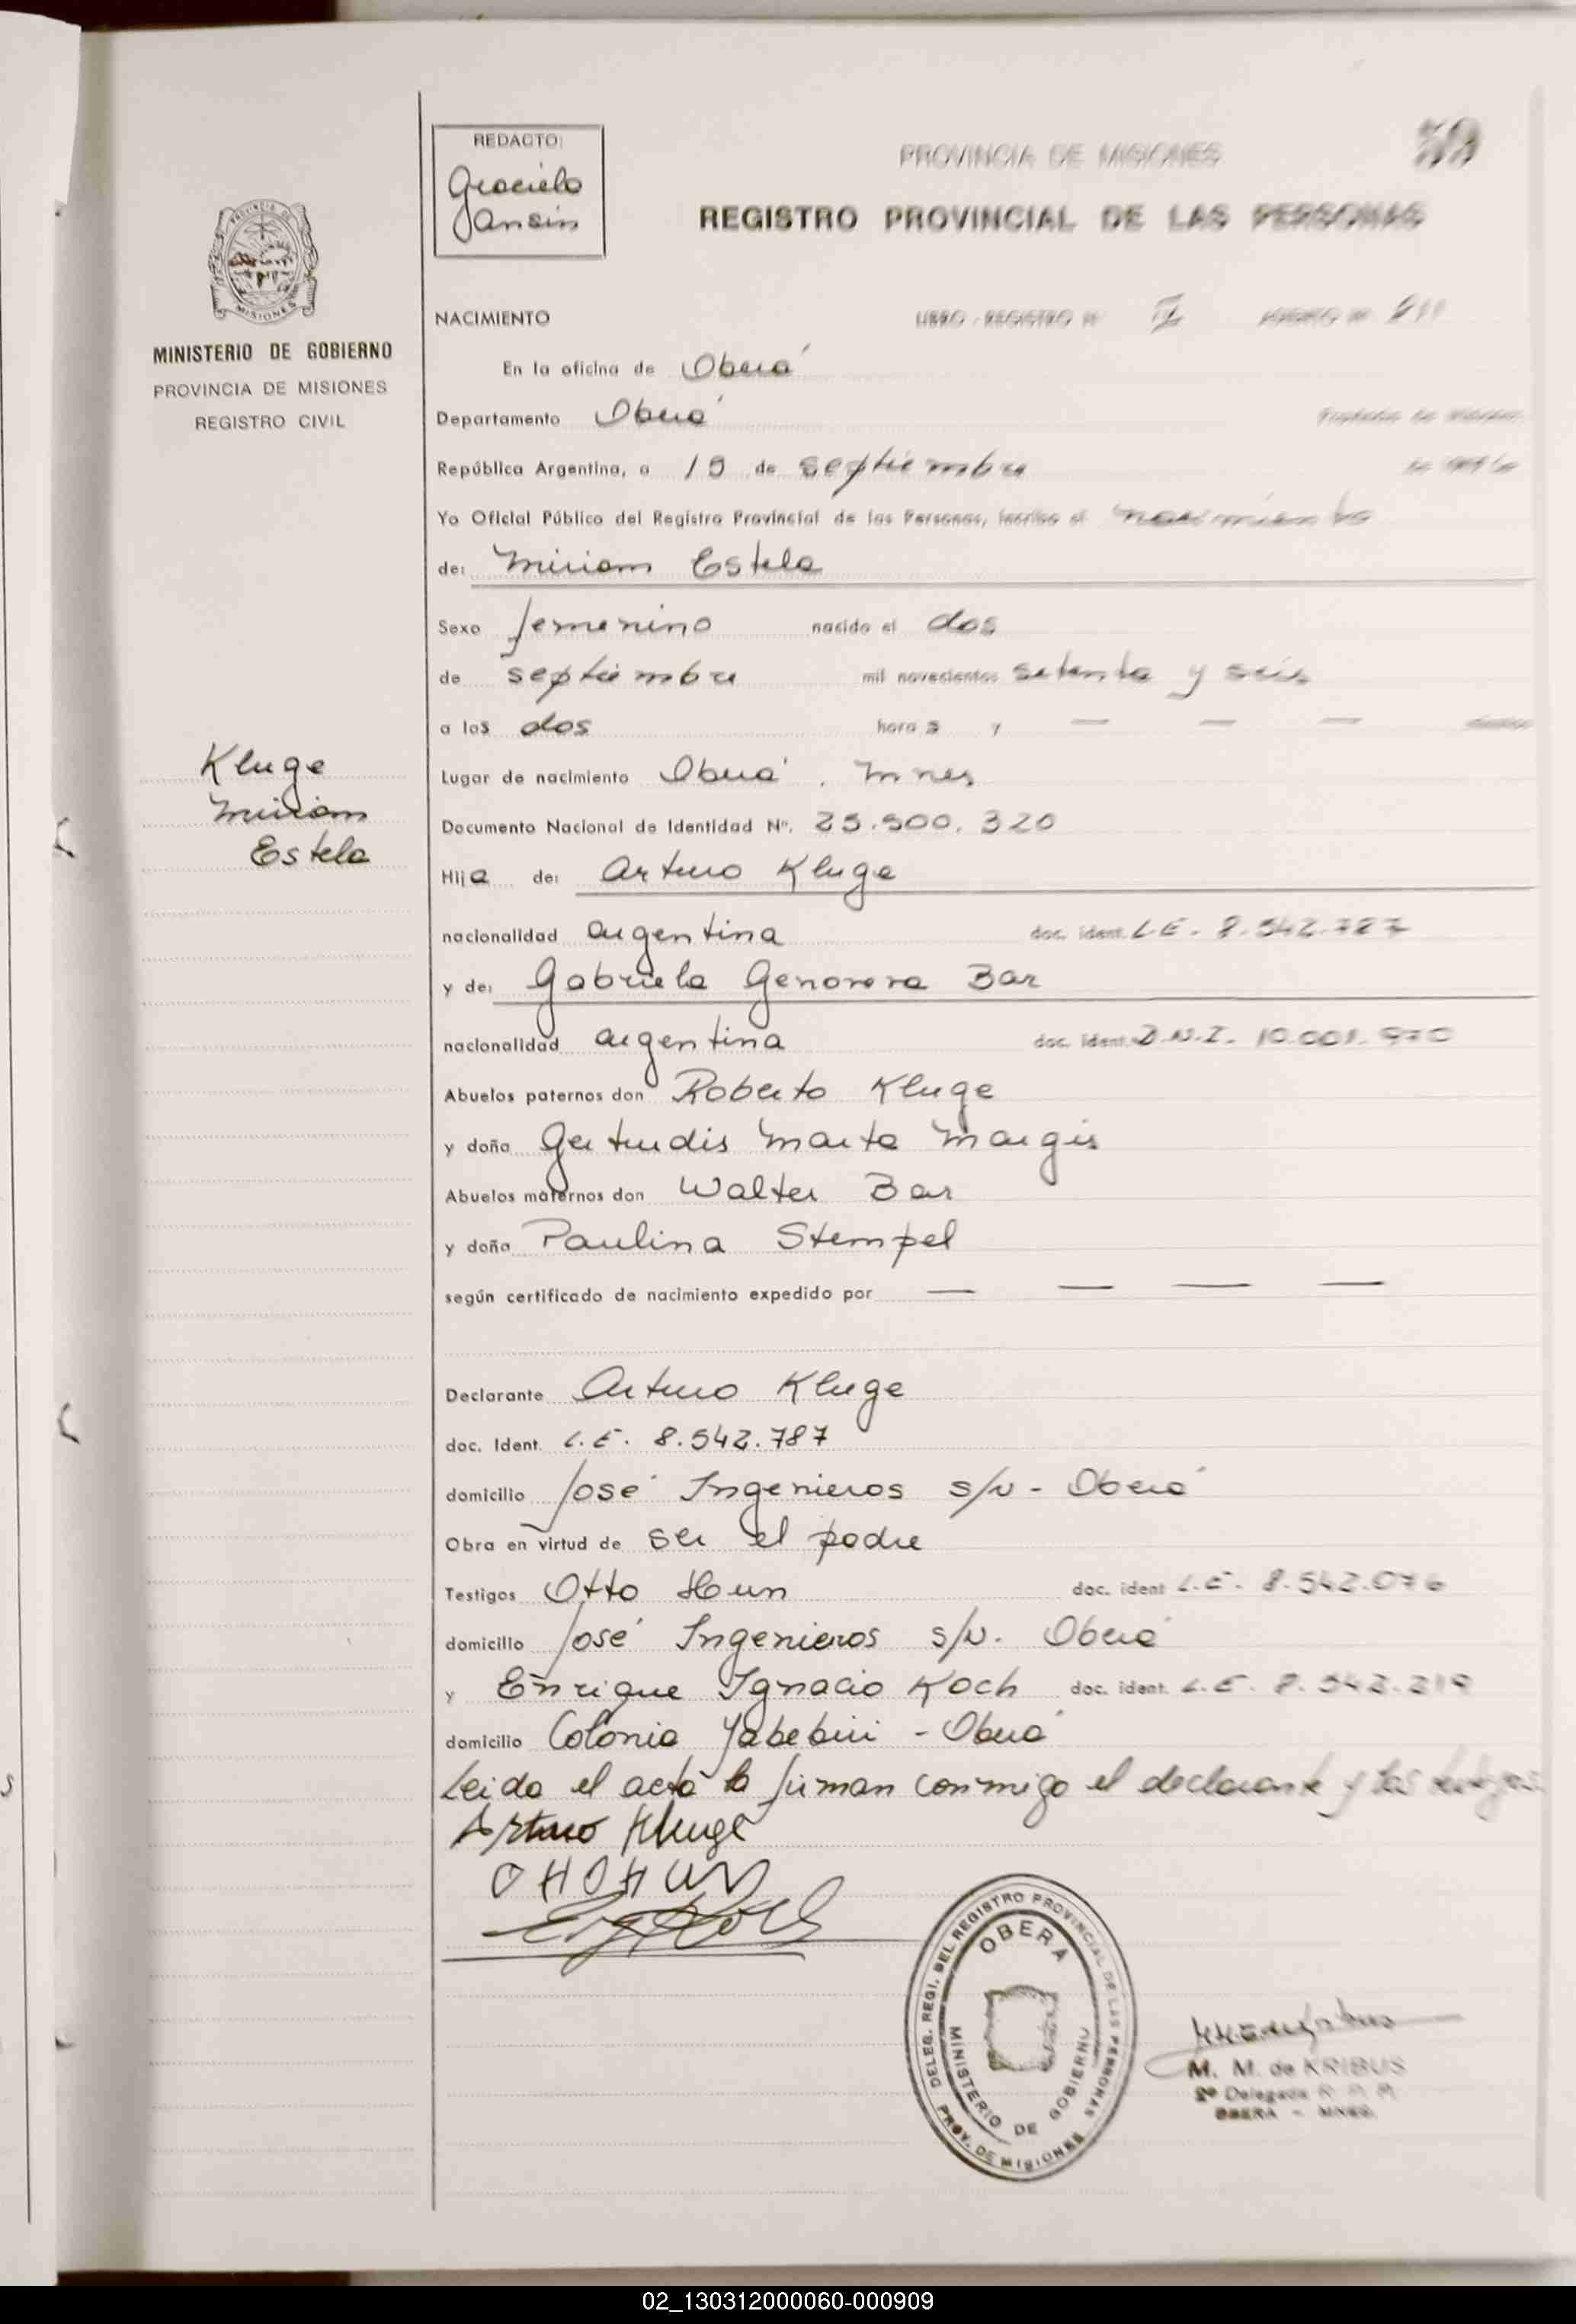 REDACTO:
Graciela
Jansin
PROVINCIA DE MISIONES
59
REGISTRO PROVINCIAL DE LAS PERSONAS
PROVINCIA DE
MISIONES
MINISTERIO DE GOBIERNO
PROVINCIA DE MISIONES
REGISTRO CIVIL
NACIMIENTO LIBRO - REGISTRO Nº II Nº 211
En la oficina de Oberá
Departamento Oberá Provincia de Misiones
República Argentina, a 15 de septiembre de
Yo Oficial Público del Registro Provincial de las Personas, inscribo el nacimiento
de: Miriam Estela
Sexo femenino nacido el dos
de septiembre mil novecientos setenta y seis
a las dos horas y — — —
Lugar de nacimiento Oberá. Mnes
Documento Nacional de Identidad Nº. 25.500.320
Kluge
Miriam
Estela
Hija de: Arturo Kluge
nacionalidad argentina doc. ident. L.E. 8.542.787
y de: Gabriela Genoveva Bar
nacionalidad argentina doc. ident. D.N.I. 10.001.970
Abuelos paternos don Roberto Kluge
y doña Gertrudis Marta Margis
Abuelos maternos don Walter Bar
y doña Paulina Stempel
según certificado de nacimiento expedido por — — — —
Declarante Arturo Kluge
doc. Ident. L.E. 8.542.787
domicilio José Ingenieros s/n - Oberá
Obra en virtud de ser el padre
Testigos Otto Hun doc. ident L.E. 8.542.076
domicilio José Ingenieros s/n. Oberá
y Enrique Ignacio Koch doc. ident. L.E. 8.542.219
domicilio Colonia Yabebiri - Oberá
Leida el acta la firman conmigo el declarante y los testigos
Arturo Kluge
OTTO HUN
DELEG. REGI. DEL REGISTRO PROVINCIAL DE LAS PERSONAS
OBERA
MINISTERIO DE GOBIERNO
PROV. DE MISIONES
M. M. de KRIBUS
2º Delegada R. P. P.
OBERA - MNES.
02_130312000060-000909